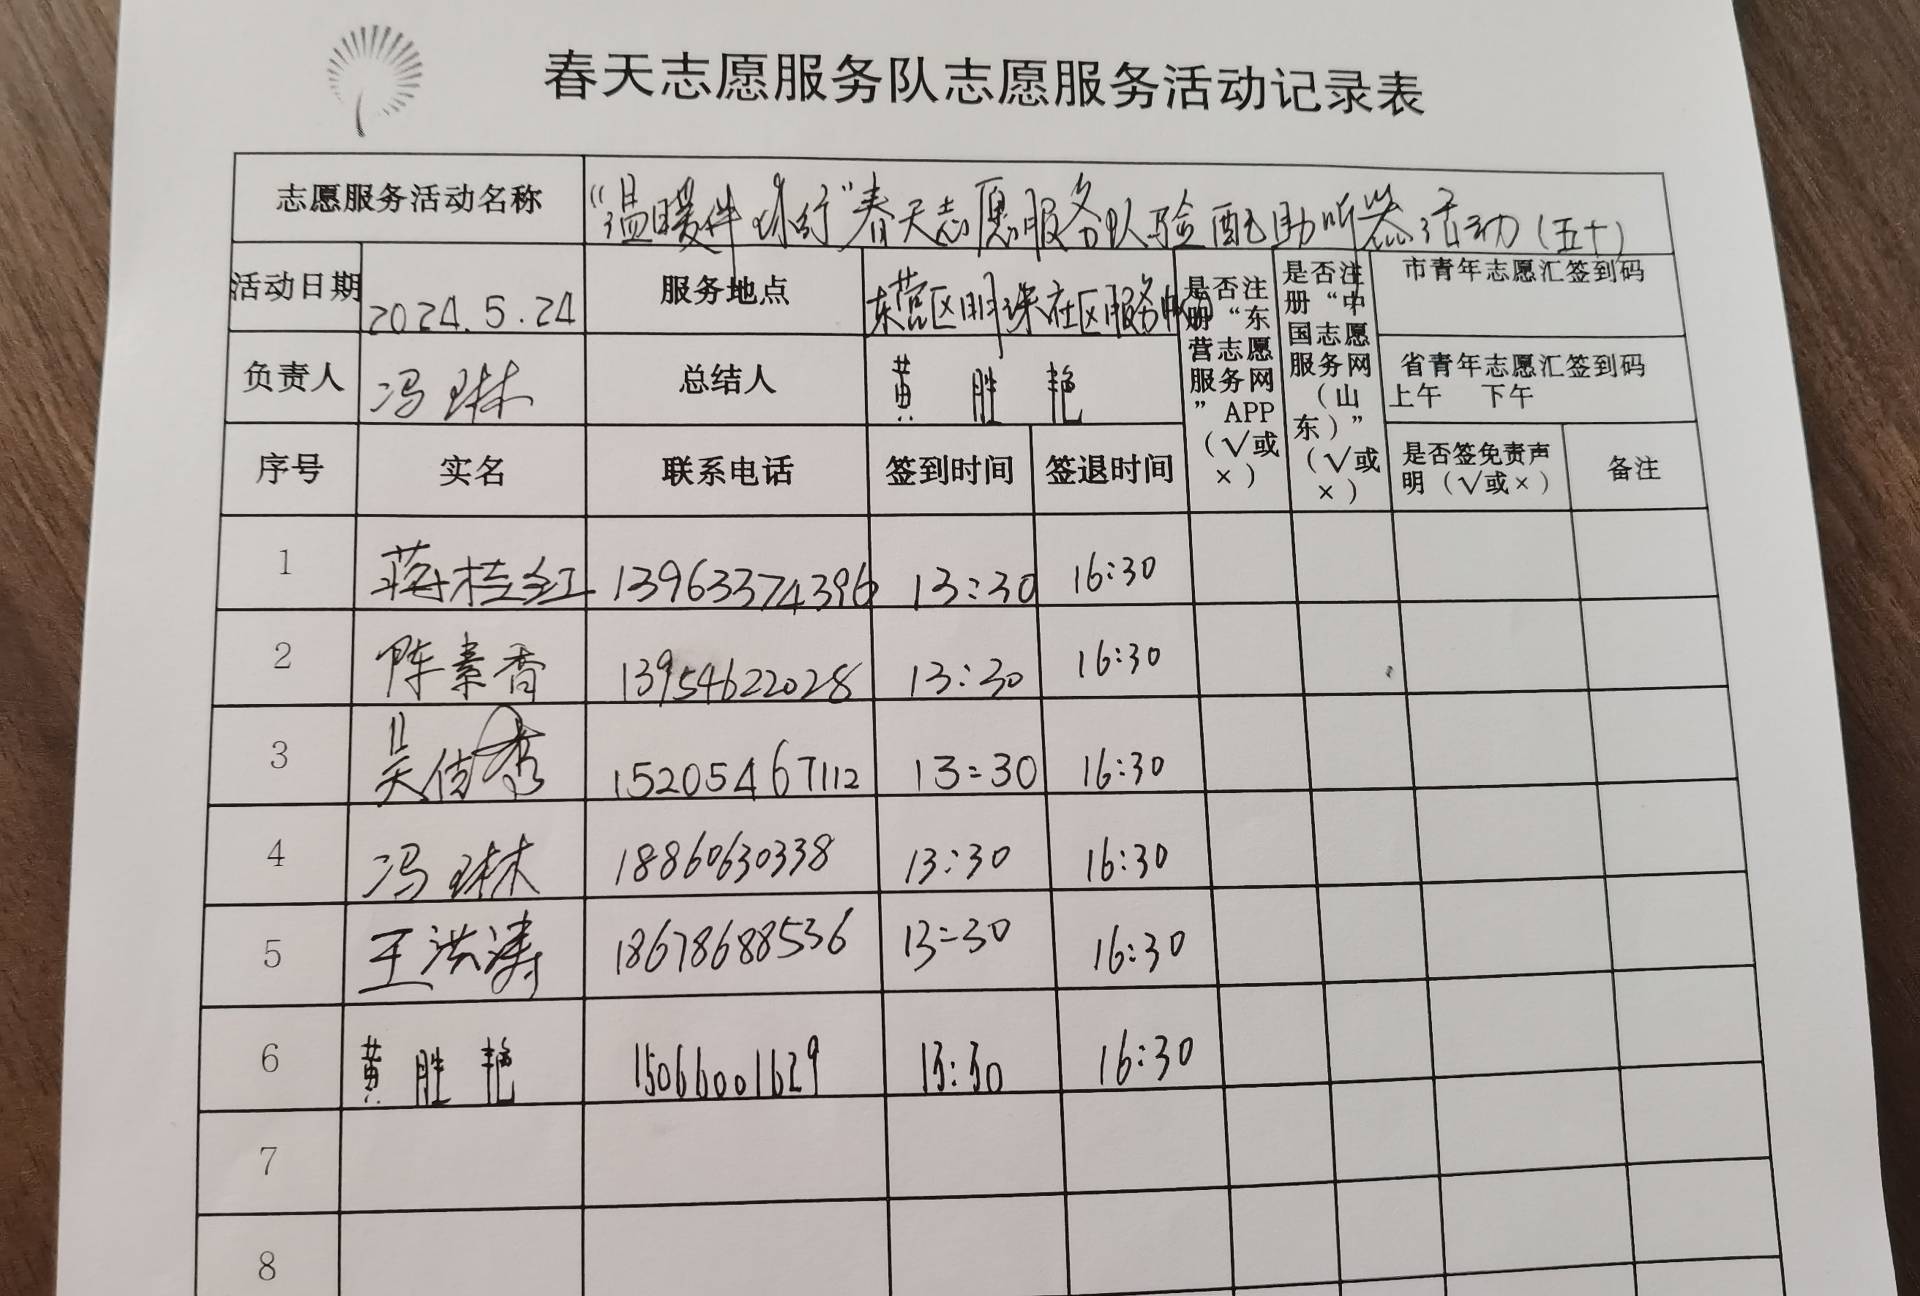 春天志愿服务队志愿服务活动记录表
志愿服务活动名称 “温暖伴你行”春天志愿服务队验配助听器活动(五十)
活动日期 2024.5.24 服务地点 东营区明珠社区服务中心
是否注册“东营志愿服务网”APP(√或×)
是否注册“中国志愿服务网(山东)”(√或×)
市青年志愿汇签到码
负责人 冯琳 总结人 黄胜艳
省青年志愿汇签到码
上午 下午
序号 实名 联系电话 签到时间 签退时间 是否签免责声明(√或×) 备注
1 蒋桂红 13963374396 13:30 16:30
2 陈素香 13954622028 13:30 16:30
3 吴佳秀 15205467112 13:30 16:30
4 冯琳 18860630338 13:30 16:30
5 王洪涛 18678688536 13:30 16:30
6 黄胜艳 15066001629 13:30 16:30
7
8